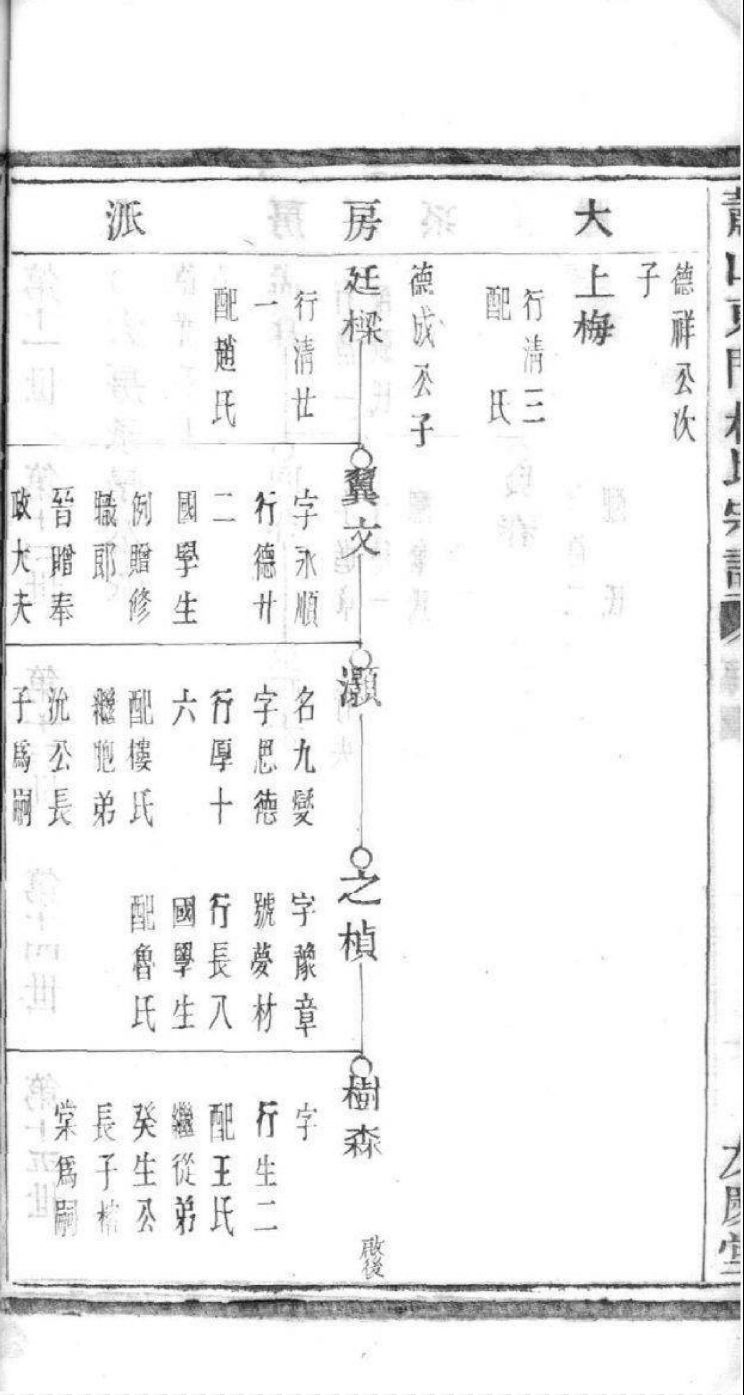 大房派
德祥公次
子
上梅
行清三
配　氏
德成公子
廷樑
行清廿
一
配趙氏
翼文
字永順
行德廿
二
國學生
例贈修
職郎
晉贈奉
政大夫
灝
名九變
字思德
行厚十
六
配樓氏
繼胞弟
沇公長
子爲嗣
之楨
字豫章
號夢材
行長八
國學生
配魯氏
樹森
字
行生二
配王氏
繼從弟
癸生公
長子
棠爲嗣
啟後